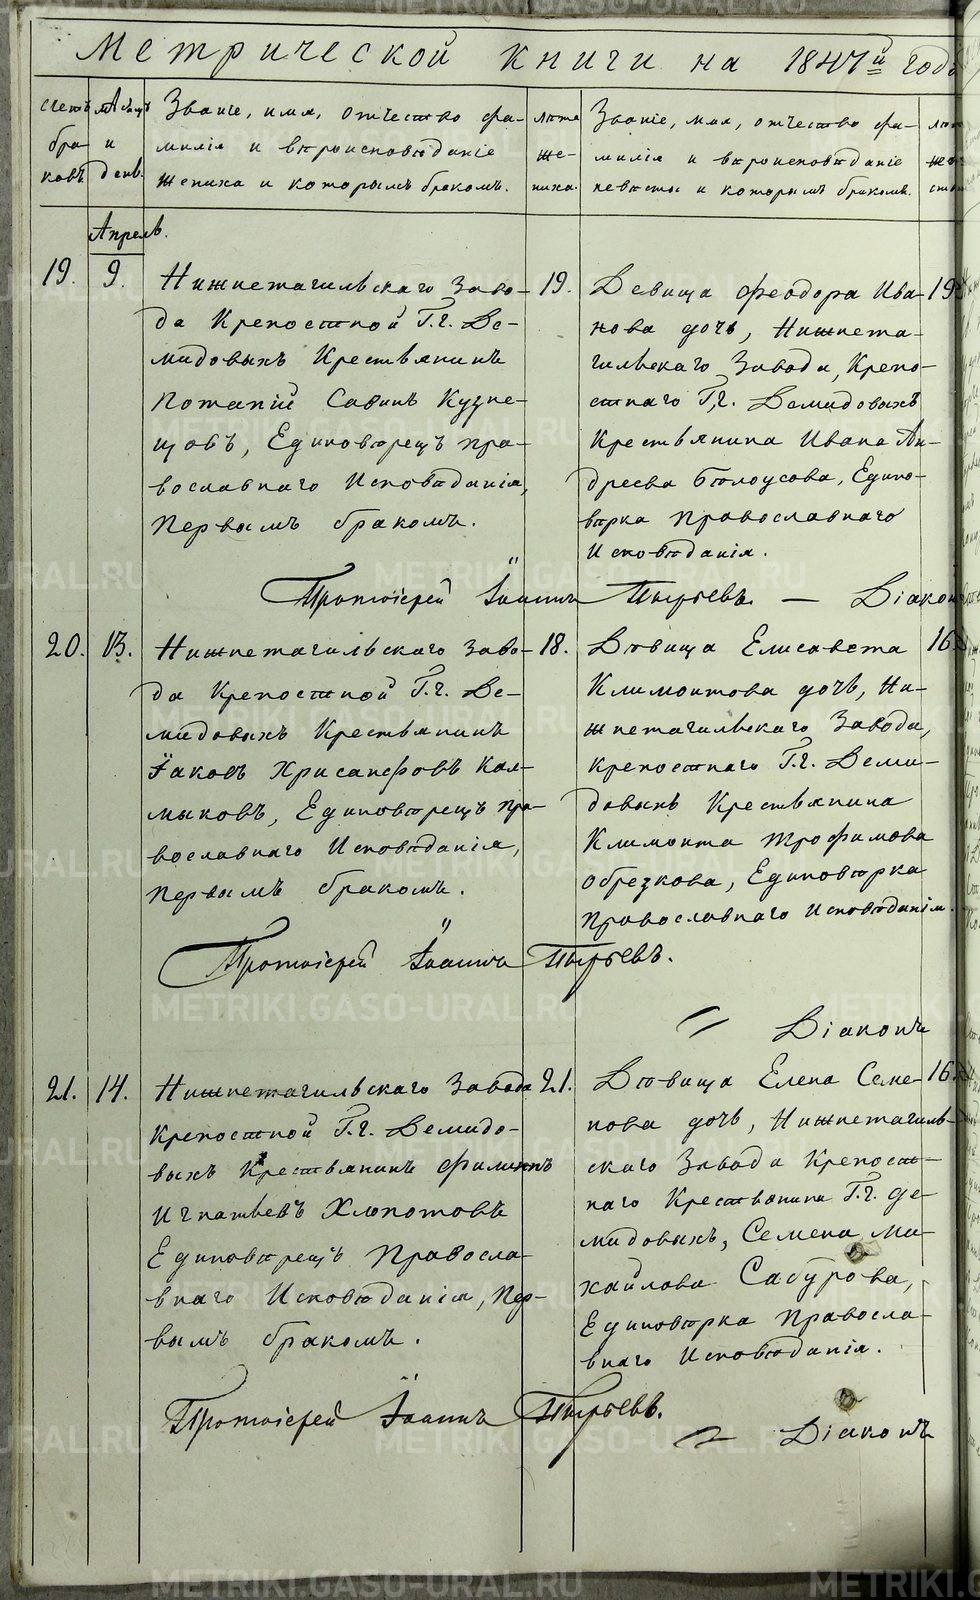 Метрической книги на 1847й годъ
счетъ браковъ
Мѣсяцъ и день.
Званіе, имя, отчество фа-
милія и вѣроисповѣданіе
жениха и которымъ бракомъ.
лѣта же-
ниха.
Званіе, имя, отчество фа-
милія и вѣроисповѣданіе
невѣсты и которымъ бракомъ.
Апрель.
19.
9.
Нижнетагильскаго Заво-
да Крепостной Г.г. Де-
мидовыхъ Крестьянинъ
Потапій Савинъ Кузне-
цовъ, Единовѣрецъ пра-
вославнаго Исповѣданія,
Первымъ бракомъ.
19.
Девица Феодора Ива-
нова дочь, Нижнета-
гильскаго Завода, Крепо-
стнаго Г.г. Демидовыхъ
Крестьянина Ивана Ан-
дреева Бѣлоусова, Едино-
вѣрка Православнаго
Исповѣданія.
19
Протоіерей Іоаннъ Пырьевъ. — Діаконъ
20.
13.
Нижнетагильскаго Заво-
да Крепостной Г.г. Де-
мидовыхъ Крестьянинъ
Іаковъ Хрисанфовъ Кал-
мыковъ, Единовѣрецъ пра-
вославнаго Исповѣданія,
Первымъ бракомъ.
18.
Дѣвица Елисавета
Климонтова дочь, Ни-
жнетагильскаго Завода,
крепостнаго Г.г. Деми-
довыхъ Крестьянина
Климонта Трофимова
Обрезкова, Единовѣрка
Православнаго Исповѣданія.
16
Протоіерей Іоаннъ Пырьевъ.
Діаконъ
21.
14.
Нижнетагильскаго Завода
Крепостной Г.г. Демидо-
выхъ Крестьянинъ Филиппъ
Игнатьевъ Хлопотовъ
Единовѣрецъ Правосла-
внаго Исповѣданія, Пер-
вымъ бракомъ.
21.
Дѣвица Елена Семе-
нова дочь, Нижнетагиль-
скаго Завода Крепост-
наго Крестьянина Г.г. Де-
мидовыхъ, Семена Ми-
хайлова Сабурова,
Единовѣрка Правосла-
внаго Исповѣданія.
16
Протоіерей Іоаннъ Пырьевъ.
Діаконъ
METRIKI.GASO-URAL.RU